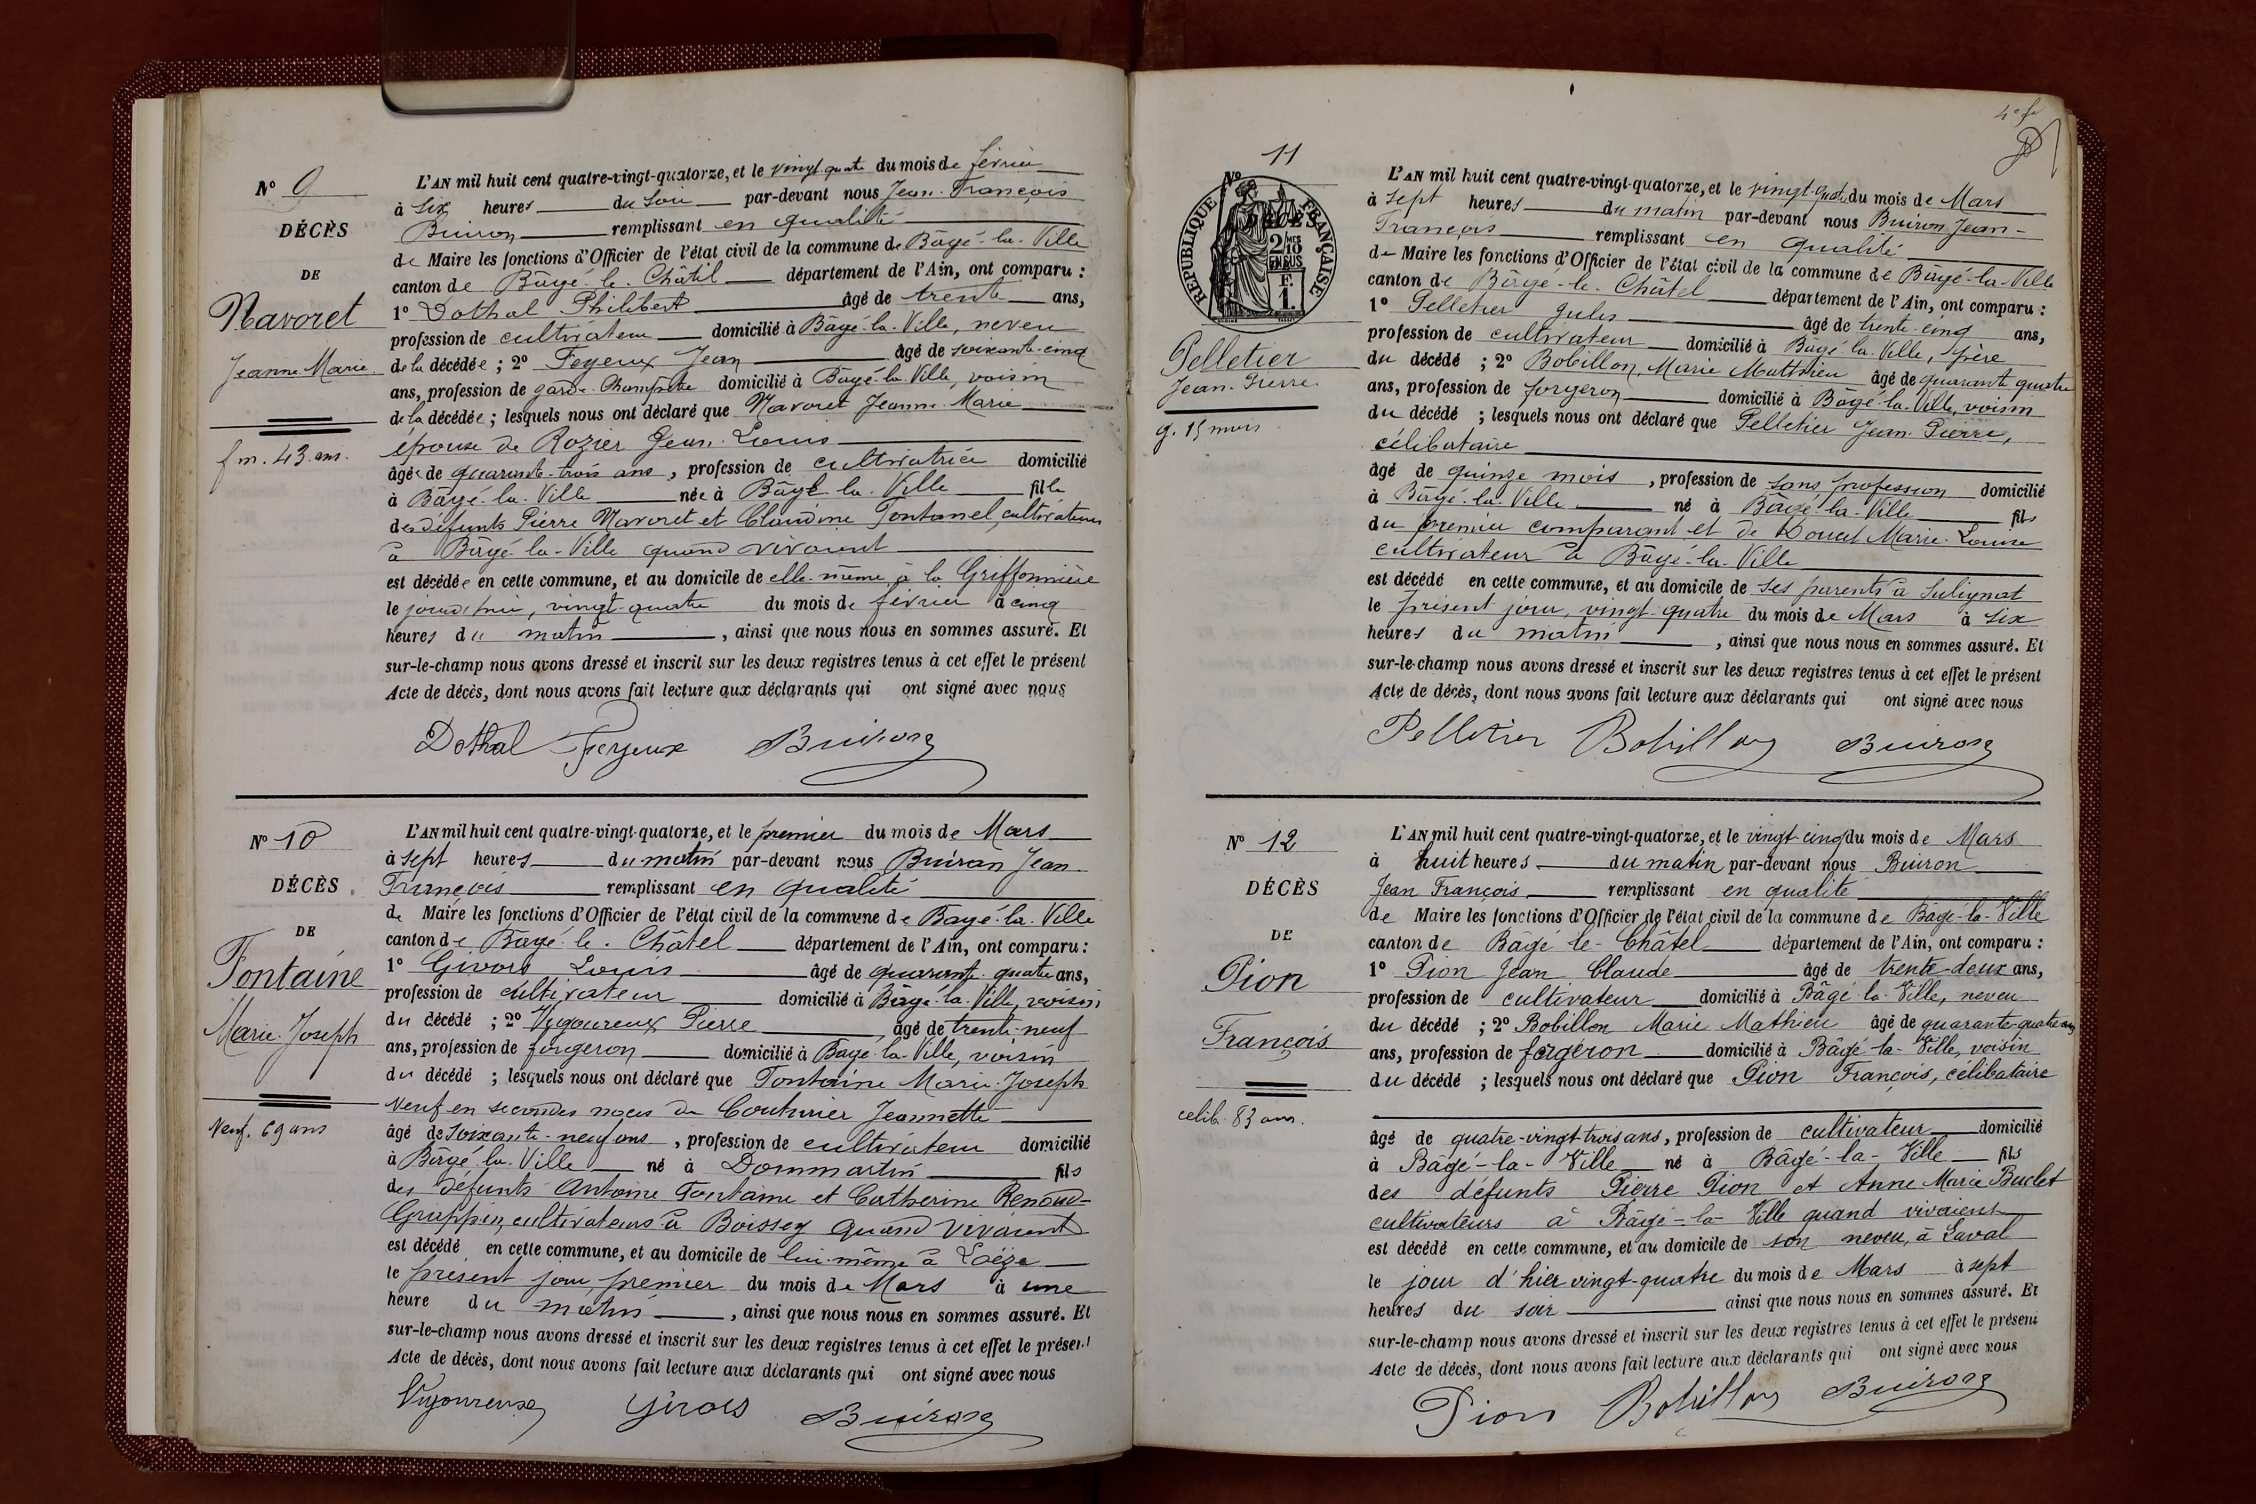 N° 9
DÉCÈS
DE
Navoret
Jeanne Marie
f m. 43 ans.
L'AN mil huit cent quatre-vingt-quatorze, et le vingt quatre du mois de février
à six heures du soir par-devant nous Jean-François
Buiron remplissant en qualité
de Maire les fonctions d'Officier de l'état civil de la commune de Bâgé-la-Ville
canton de Bâgé-le-Châtel département de l'Ain, ont comparu :
1° Dothal Philibert âgé de trente ans,
profession de cultivateur domicilié à Bâgé-la-Ville, neveu
de la décédée ; 2° Feyeux Jean âgé de soixante-cinq
ans, profession de garde-champêtre domicilié à Bâgé-la-Ville, voisin
de la décédée ; lesquels nous ont déclaré que Navoret Jeanne-Marie
épouse de Rozier Jean-Louis
âgée de quarante-trois ans, profession de cultivatrice domicilié
à Bâgé-la-Ville née à Bâgé-la-Ville fille
des défunts Pierre Navoret et Claudine Fontanel, cultivateurs
à Bâgé-la-Ville quand vivaient
est décédée en cette commune, et au domicile de elle-même à la Griffonnière
le jourd'hui, vingt-quatre du mois de février à cinq
heures du matin, ainsi que nous nous en sommes assuré. Et
sur-le-champ nous avons dressé et inscrit sur les deux registres tenus à cet effet le présent
Acte de décès, dont nous avons fait lecture aux déclarants qui ont signé avec nous
Dothal Feyeux Buiron
N° 10
DÉCÈS
DE
Fontaine
Marie-Joseph
Veuf. 69 ans
L'AN mil huit cent quatre-vingt-quatorze, et le premier du mois de Mars
à sept heures du matin par-devant nous Buiron Jean
François remplissant en qualité
de Maire les fonctions d'Officier de l'état civil de la commune de Bâgé-la-Ville
canton de Bâgé-le-Châtel département de l'Ain, ont comparu :
1° Givors Louis âgé de quarante-quatre ans,
profession de cultivateur domicilié à Bâgé-la-Ville, voisin
du décédé ; 2° Vigoureux Pierre âgé de trente-neuf
ans, profession de forgeron domicilié à Bâgé-la-Ville, voisin
du décédé ; lesquels nous ont déclaré que Fontaine Marie-Joseph
Veuf en secondes noces de Couturier Jeannette
âgé de soixante-neuf ans, profession de cultivateur domicilié
à Bâgé-la-Ville né à Dommartin fils
des défunts Antoine Fontaine et Catherine Renoud-
Grappin, cultivateurs à Boissey quand vivaient
est décédé en cette commune, et au domicile de lui-même à Loëze
le présent jour premier du mois de Mars à une
heure du matin, ainsi que nous nous en sommes assuré. Et
sur-le-champ nous avons dressé et inscrit sur les deux registres tenus à cet effet le présent
Acte de décès, dont nous avons fait lecture aux déclarants qui ont signé avec nous
Vigoureux Givors Buiron
4e f.
N° 11
RÉPUBLIQUE FRANÇAISE
2/10 MES EN SUS
F. 1.
Pelletier
Jean-Pierre
g. 15 mois
L'AN mil huit cent quatre-vingt-quatorze, et le vingt-quatre du mois de Mars
à sept heures du matin par-devant nous Buiron Jean-
François remplissant en qualité
de Maire les fonctions d'Officier de l'état civil de la commune de Bâgé-la-Ville
canton de Bâgé-le-Châtel département de l'Ain, ont comparu :
1° Pelletier Jules âgé de trente-cinq ans,
profession de cultivateur domicilié à Bâgé-la-Ville, père
du décédé ; 2° Bobillon Marie Matthieu âgé de quarante quatre
ans, profession de forgeron domicilié à Bâgé-la-Ville, voisin
du décédé ; lesquels nous ont déclaré que Pelletier Jean-Pierre,
célibataire
âgé de quinze mois, profession de sans profession domicilié
à Bâgé-la-Ville né à Bâgé-la-Ville fils
du premier comparant et de Doucet Marie-Louise
cultivateur à Bâgé-la-Ville
est décédé en cette commune, et au domicile de ses parents à Sulignat
le présent jour, vingt-quatre du mois de Mars à six
heures du matin, ainsi que nous nous en sommes assuré. Et
sur-le-champ nous avons dressé et inscrit sur les deux registres tenus à cet effet le présent
Acte de décès, dont nous avons fait lecture aux déclarants qui ont signé avec nous
Pelletier Bobillon Buiron
N° 12
DÉCÈS
DE
Pion
François
celib. 83 ans.
L'AN mil huit cent quatre-vingt-quatorze, et le vingt cinq du mois de Mars
à huit heures du matin par-devant nous Buiron
Jean François remplissant en qualité
de Maire les fonctions d'Officier de l'état civil de la commune de Bâgé-la-Ville
canton de Bâgé-le-Châtel département de l'Ain, ont comparu :
1° Pion Jean Claude âgé de trente-deux ans,
profession de cultivateur domicilié à Bâgé-la-Ville, neveu
du décédé ; 2° Bobillon Marie Mathieu âgé de quarante-quatre ans
ans, profession de forgeron domicilié à Bâgé-la-Ville, voisin
du décédé ; lesquels nous ont déclaré que Pion François, célibataire
âgé de quatre-vingt-trois ans, profession de cultivateur domicilié
à Bâgé-la-Ville né à Bâgé-la-Ville fils
des défunts Pierre Pion et Anne Marie Buclet
cultivateurs à Bâgé-la-Ville quand vivaient
est décédé en cette commune, et au domicile de son neveu, à Laval
le jour d'hier vingt-quatre du mois de Mars à sept
heures du soir ainsi que nous nous en sommes assuré. Et
sur-le-champ nous avons dressé et inscrit sur les deux registres tenus à cet effet le présent
Acte de décès, dont nous avons fait lecture aux déclarants qui ont signé avec nous
Pion Bobillon Buiron